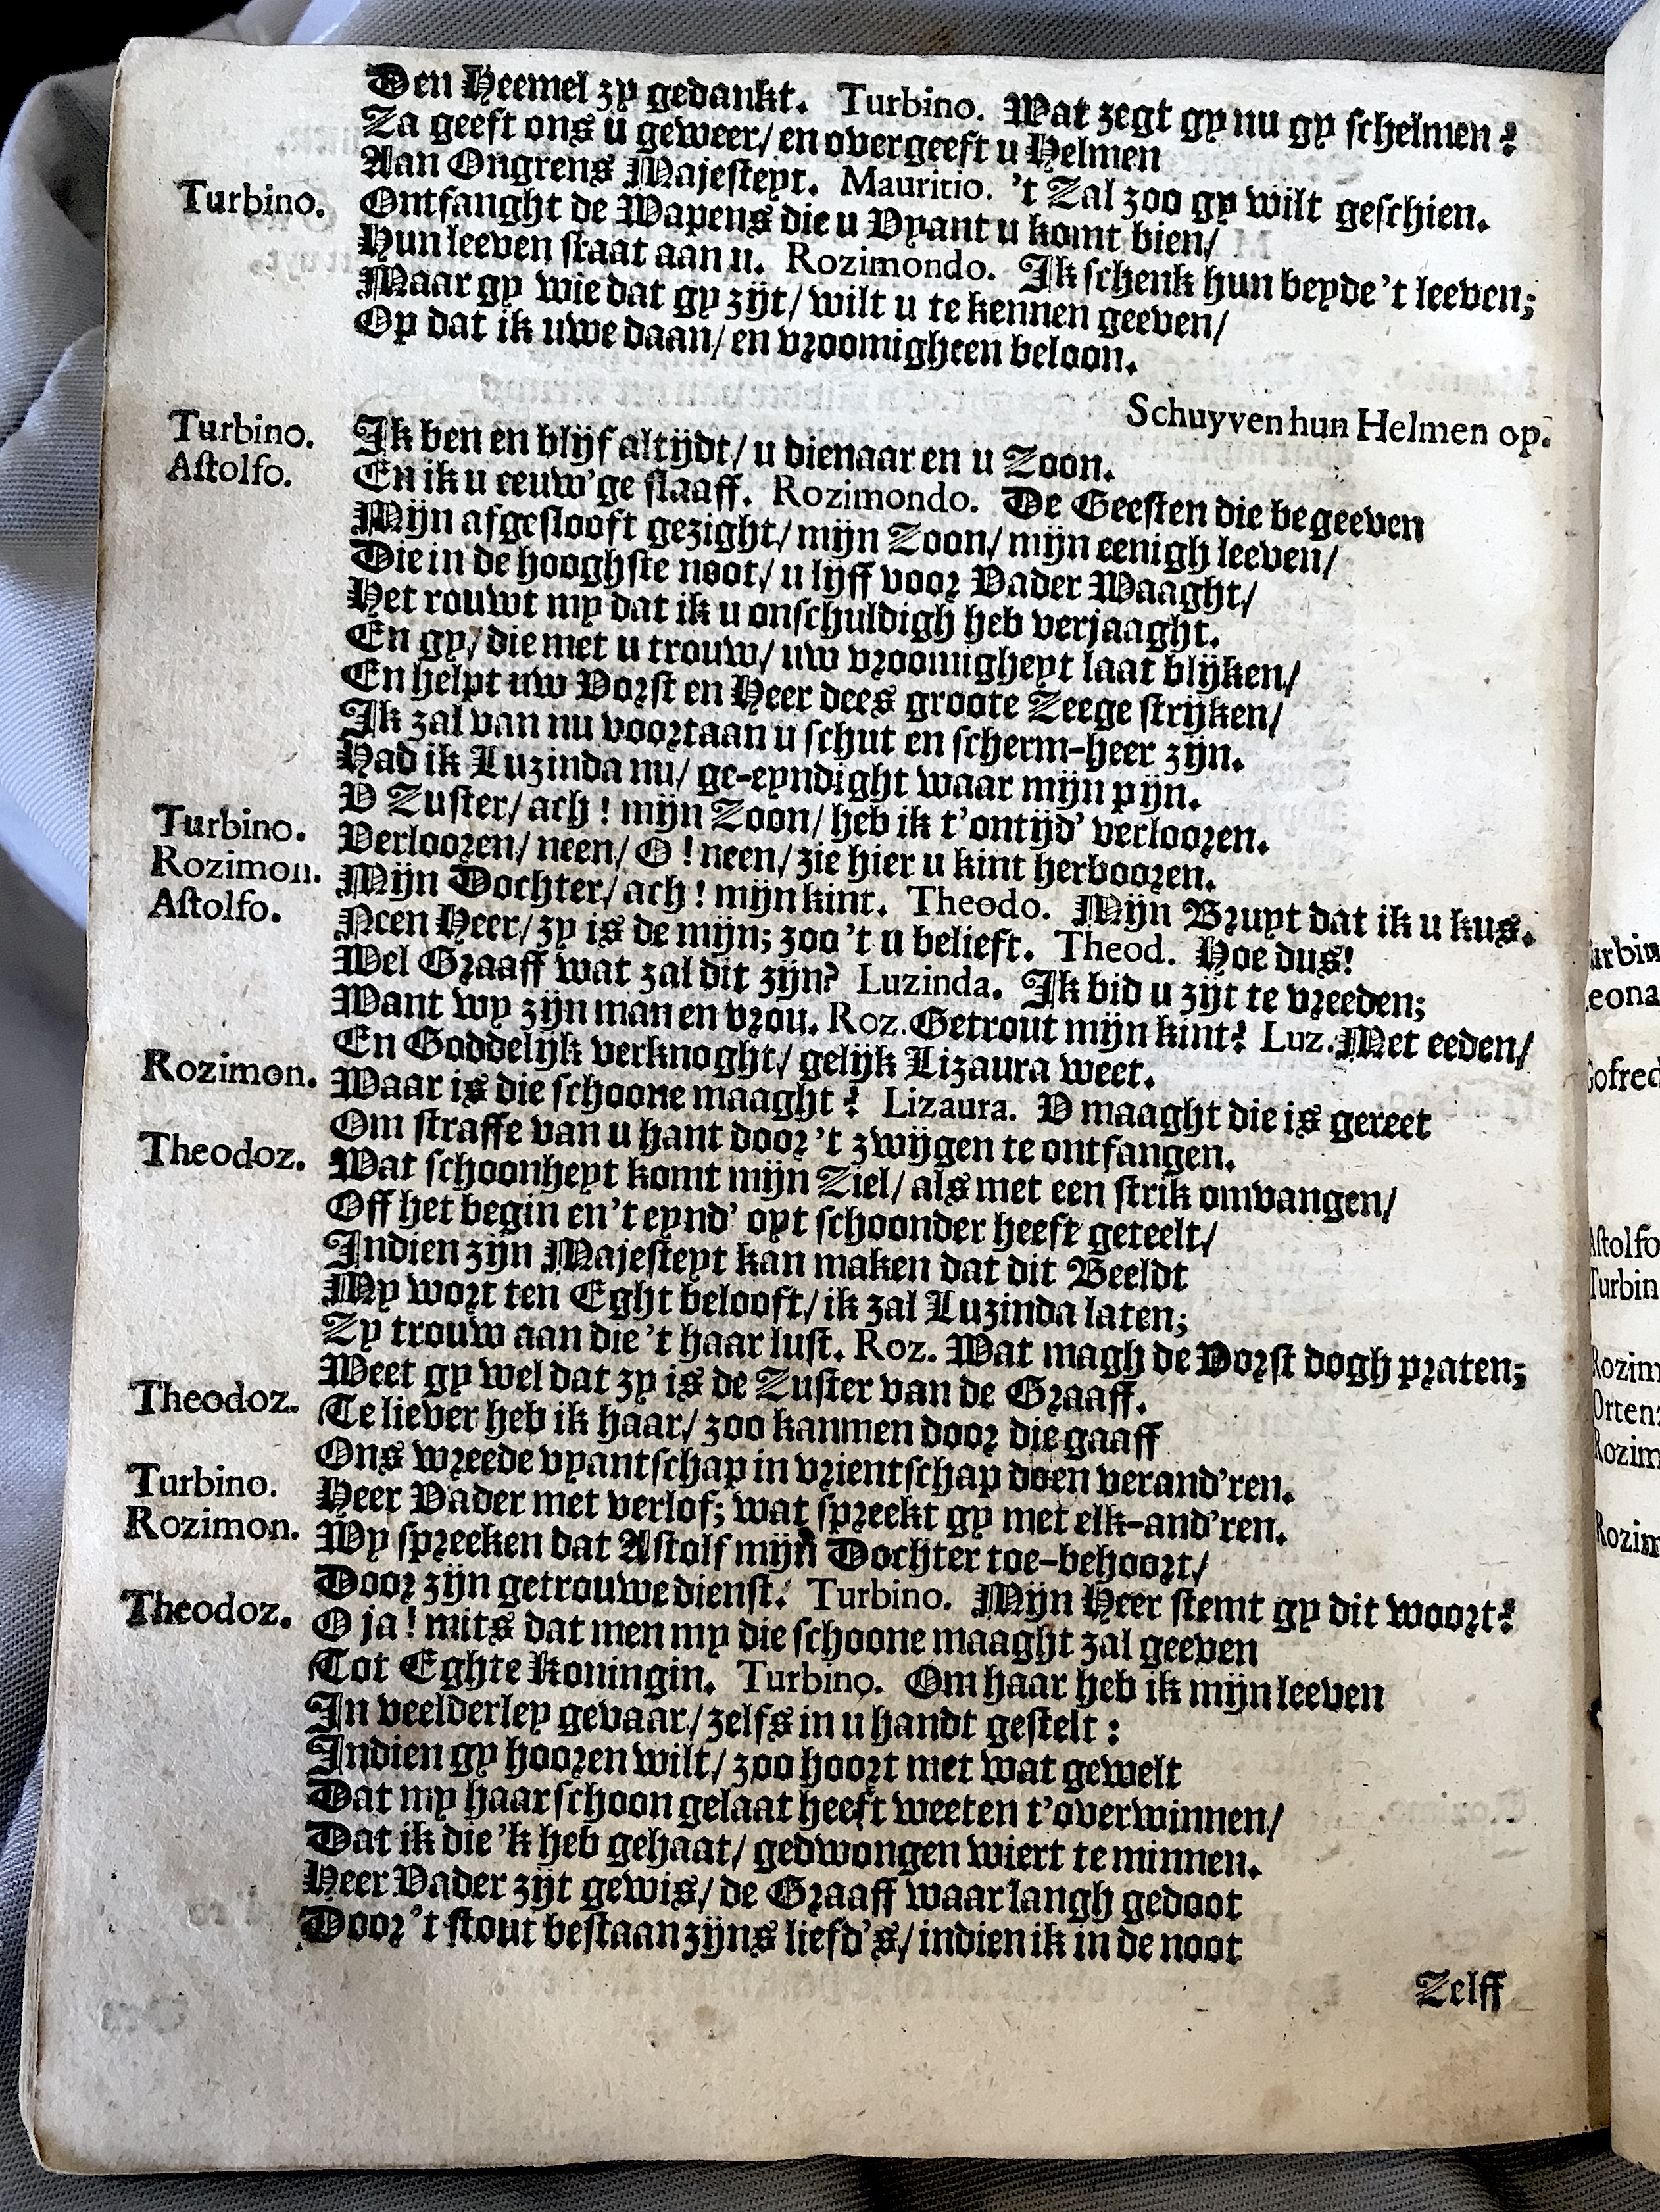 Den Heemel zy gedankt. Turbino. Wat zegt gy nu gy schelmen?
Za geeft ons u geweer/ en overgeeft u Helmen
Aan Ongrens Majesteyt. Mauritio. 't Zal zoo gy wilt geschien.
Turbino. Ontfanght de Wapens die u Vyant u komt bien/
Hun leeven staat aan u. Rozimondo. Ik schenk hun beyde 't leeven;
Maar gy wie dat gy zijt/ wilt u te kennen geeven/
Op dat ik uwe daan/ en vroomigheen beloon.
Schuyven hun Helmen op.
Turbino. Ik ben en blijf altijdt/ u dienaar en u Zoon.
Astolfo. En ik u eeuw'ge slaaff. Rozimondo. De Geesten die begeeven
Mijn afgeslooft gezight/ mijn Zoon/ mijn eenigh leeven/
Die in de hooghste noot/ u lijff voor Vader Waaght/
Het rouwt my dat ik u onschuldigh heb verjaaght.
En gy/ die met u trouw/ uw vroomigheyt laat blijken/
En helpt uw Vorst en Heer dees groote Zeege strijken/
Ik zal van nu voortaan u schut en scherm-heer zijn.
Had ik Luzinda nu/ ge-eyndight waar mijn pijn.
V Zuster/ ach! mijn Zoon/ heb ik t'ontijd' verlooren.
Turbino. Verlooren/ neen/ O! neen/ zie hier u kint herbooren.
Rozimon. Mijn Dochter/ ach! mijn kint. Theodo. Mijn Bruyt dat ik u kus.
Astolfo. Neen Heer/ zy is de mijn; zoo 't u belieft. Theod. Hoe dus!
Wel Graaff wat zal dit zijn? Luzinda. Ik bid u zijt te vreeden;
Want wy zijn man en vrou. Roz. Getrout mijn kint? Luz. Met eeden/
En Goddelijk verknoght/ gelijk Lizaura weet.
Rozimon. Waar is die schoone maaght? Lizaura. V maaght die is gereet
Om straffe van u hant door 't zwijgen te ontfangen.
Theodoz. Wat schoonheyt komt mijn Ziel/ als met een strik omvangen/
Off het begin en 't eynd' oyt schoonder heeft geteelt/
Indien zijn Majesteyt kan maken dat dit Beeldt
My wort ten Eght belooft/ ik zal Luzinda laten;
Zy trouw aan die 't haar lust. Roz. Wat magh de Vorst dogh praten;
Weet gy wel dat zy is de Zuster van de Graaff.
Theodoz. Te liever heb ik haar/ zoo kanmen door die gaaff
Ons wreede vyantschap in vrientschap doen verand'ren.
Turbino. Heer Vader met verlof; wat spreekt gy met elk-and'ren.
Rozimon. Wy spreeken dat Astolf mijn Dochter toe-behoort/
Door zijn getrouwe dienst. Turbino. Mijn Heer stemt gy dit woort?
Theodoz. O ja! mits dat men my die schoone maaght zal geeven
Tot Eghte Koningin. Turbino. Om haar heb ik mijn leeven
In veelderley gevaar/ zelfs in u handt gestelt:
Indien gy hooren wilt/ zoo hoort met wat gewelt
Dat my haar schoon gelaat heeft weeten t'overwinnen/
Dat ik die 'k heb gehaat/ gedwongen wiert te minnen.
Heer Vader zijt gewis/ de Graaff waar langh gedoot
Door 't stout bestaan zijns liefd's/ indien ik in de noot
Zelff